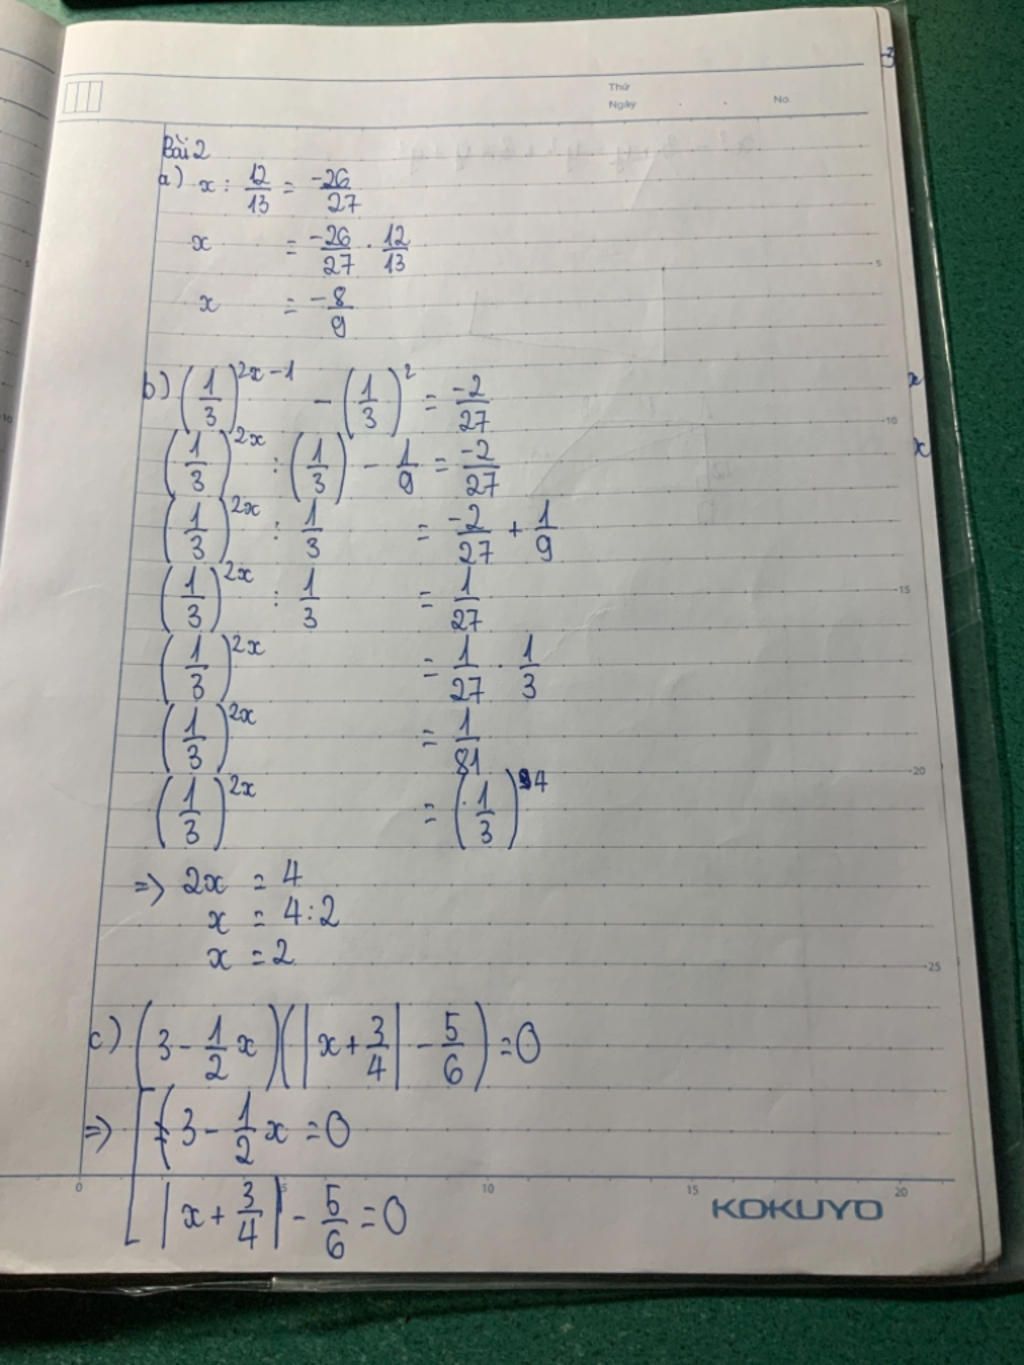 3
Thứ
Ngày . . No.
Bài 2
a) x : 12/13 = -26/27
x = -26/27 . 12/13
x = -8/9
5
b) (1/3)^(2x-1) - (1/3)^2 = -2/27
x
10
(1/3)^(2x) : (1/3) - 1/9 = -2/27
x
(1/3)^(2x) : 1/3 = -2/27 + 1/9
(1/3)^(2x) : 1/3 = 1/27
15
(1/3)^(2x) = 1/27 . 1/3
(1/3)^(2x) = 1/81
20
(1/3)^(2x) = (1/3)^4
=> 2x = 4
x = 4:2
x = 2
25
c) (3 - 1/2 x)(|x + 3/4| - 5/6) = 0
=> [ 3 - 1/2 x = 0
|x + 3/4| - 5/6 = 0
0 5 10 15 20
KOKUYO